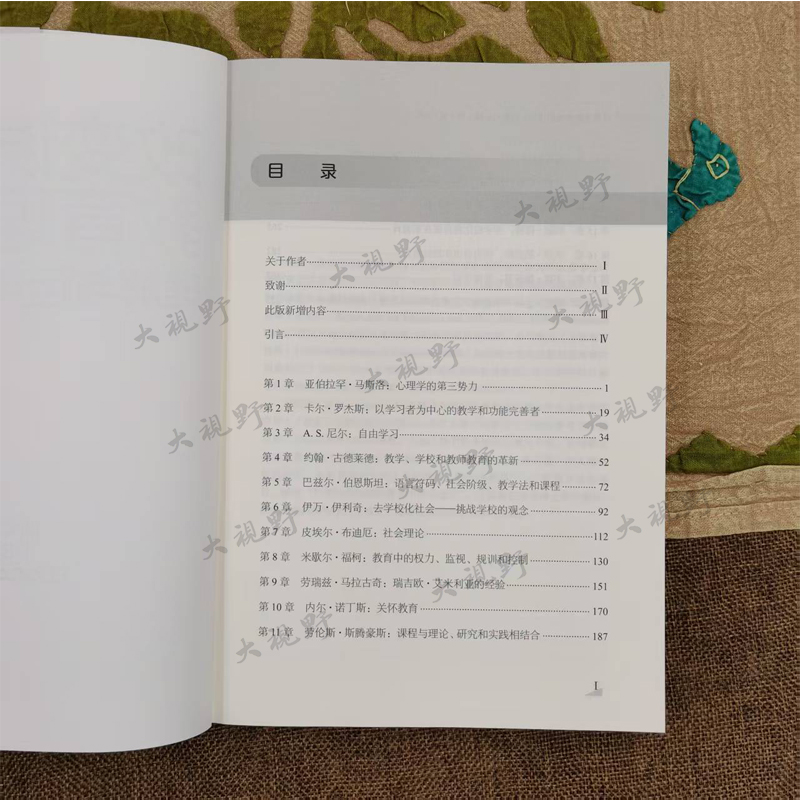 目 录
关于作者 Ⅰ
致谢 Ⅱ
此版新增内容 Ⅲ
引言 Ⅳ
第 1 章 亚伯拉罕·马斯洛：心理学的第三势力 1
第 2 章 卡尔·罗杰斯：以学习者为中心的教学和功能完善者 19
第 3 章 A. S. 尼尔：自由学习 34
第 4 章 约翰·古德莱德：教学、学校和教师教育的革新 52
第 5 章 巴兹尔·伯恩斯坦：语言符码、社会阶级、教学法和课程 72
第 6 章 伊万·伊利奇：去学校化社会——挑战学校的观念 92
第 7 章 皮埃尔·布迪厄：社会理论 112
第 8 章 米歇尔·福柯：教育中的权力、监视、规训和控制 130
第 9 章 劳瑞兹·马拉古奇：瑞吉欧·艾米利亚的经验 151
第 10 章 内尔·诺丁斯：关怀教育 170
第 11 章 劳伦斯·斯腾豪斯：课程与理论、研究和实践相结合 187
Ⅰ
大視野
大視野
大視野
大視野
大視野
大視野
大視野
大視野
大視野
大視野
大視野